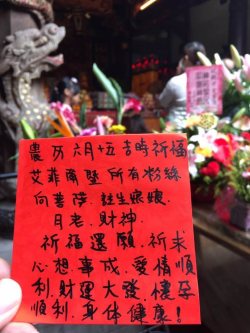 農历六月十五吉時祈福
艾菲爾墅所有粉絲
向菩薩.註生娘娘.
月老.財神.
祈福還願.祈求
心想事成.愛情順
利.財運大發.懷孕
順利.身体健康!